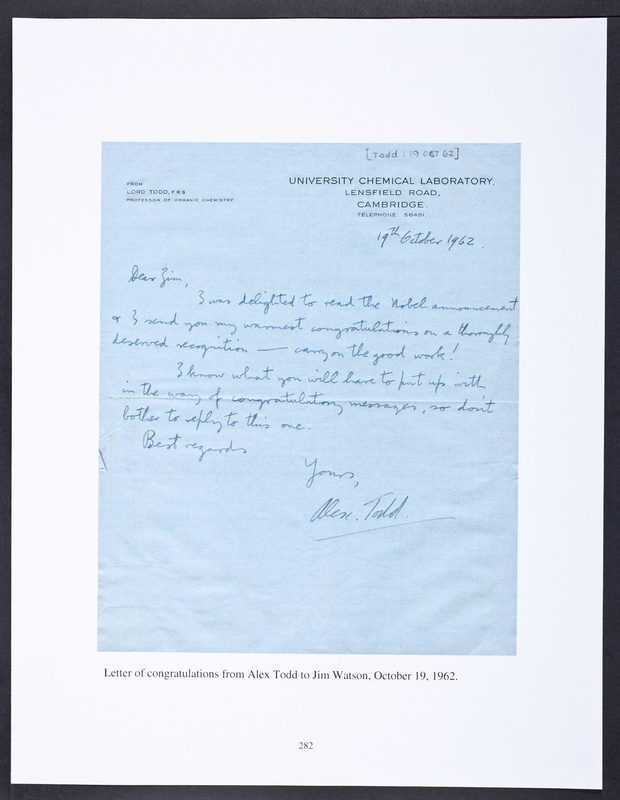 [Todd : 19 OCT 62]
FROM
LORD TODD, F.R.S.
PROFESSOR OF ORGANIC CHEMISTRY
UNIVERSITY CHEMICAL LABORATORY,
LENSFIELD ROAD,
CAMBRIDGE.
TELEPHONE 56491.
19th October 1962.
Dear Jim,
I was delighted to read the Nobel announcement
& I send you my warmest congratulations on a thoroughly
deserved recognition — carry on the good work!
I know what you will have to put up with
in the way of congratulatory messages, so don't
bother to reply to this one.
Best regards
Yours,
Alex. Todd.
Letter of congratulations from Alex Todd to Jim Watson, October 19, 1962.
282